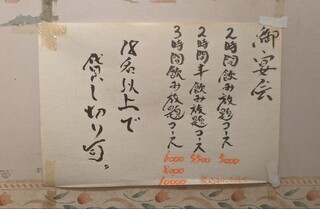 御宴会
2時間飲み放題コース 5000
2時間半飲み放題コース 5500
3時間飲み放題コース 6000
8000
10000
18名以上で
貸し切り可。